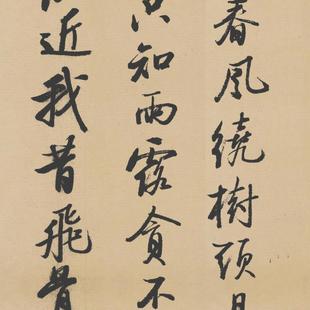 春風繞樹頭日
只知雨露貪不
近我昔飛骨